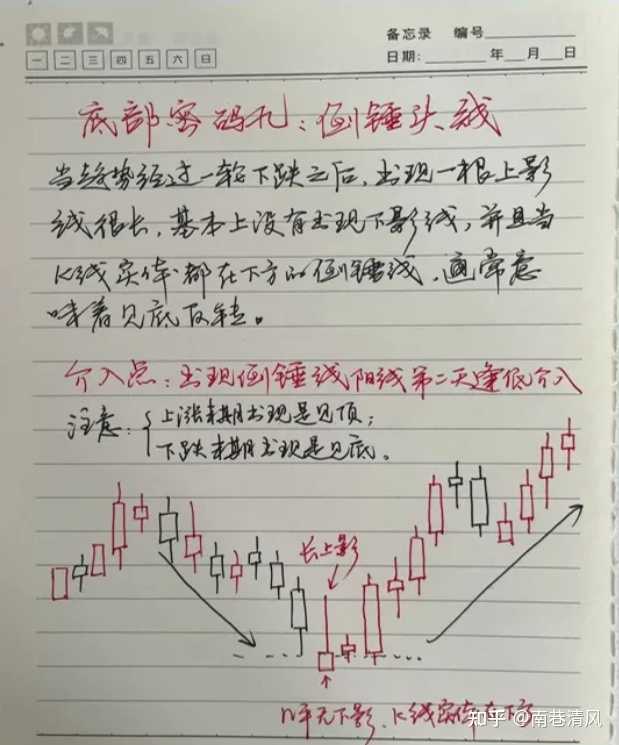 备忘录 编号
一 二 三 四 五 六 日
日期: 年 月 日
底部密码九:倒锤头线
当趋势经过一轮下跌之后,出现一根上影
线很长,基本上没有出现下影线,并且当
K线实体都在下方的倒锤线,通常意
味着见底反转。
介入点:出现倒锤线阳线第二天逢低介入
注意:
上涨末期出现是见顶;
下跌末期出现是见底。
长上影
几乎无下影,K线实体在下方
知乎 @南巷清风